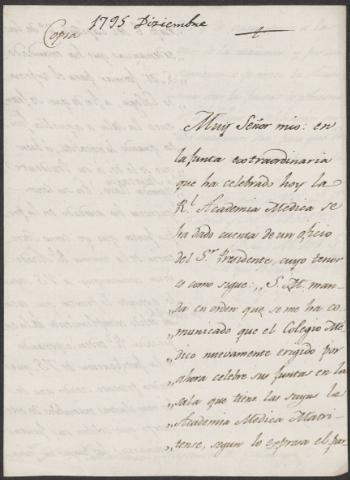 Copia 1795 Diziembre
Muy Señor mio: en
la Junta extraordinaria
que ha celebrado hoy la
Rl. Academia Medica se
ha dado cuenta de un oficio
del Sr. Presidente, cuyo tenor
es como sigue: ,, S. M. man-
,,da en orden que se me ha co-
,,municado que el Colegio Mé-
,,dico nuevamente erigido por
,,ahora celebre sus Juntas en la
,,sala que tiene las suyas la
,,Academia Medica Matri-
,,tense, segun lo expresa el par